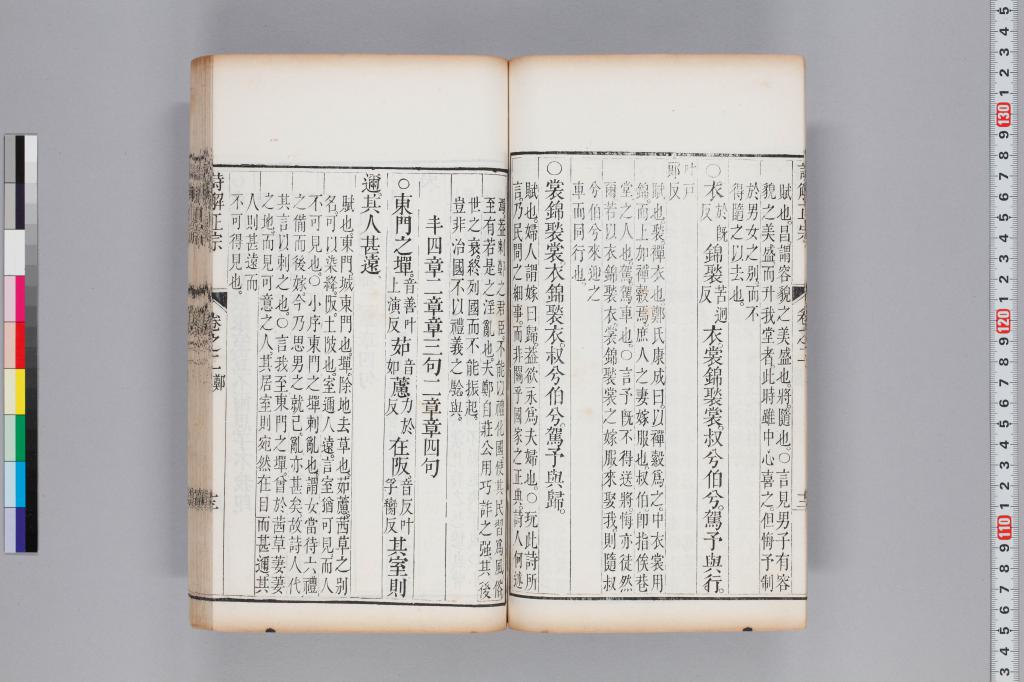 賦也。昌謂容貌之美盛也。將隨也。○言見男子有容
貌之美盛而升我堂者此時雖中心喜之。但悔予制
於男女之別。而不
得隨之以去也。
○衣於旣反錦褧苦迥反衣裳錦褧裳。叔兮伯兮。駕予與行。叶戸郎反
賦也。褧襌衣也。鄭氏康成曰以襌縠爲之。中衣裳用
錦。而上加襌縠焉。庶人之妻嫁服也。叔伯卽指俟巷
堂之人也。駕駕車也。○言予旣不得送將。悔亦徒然
爾。若以衣錦褧衣裳錦褧裳之嫁服來娶我。則隨叔
兮伯兮來迎之
車而同行也。
○裳錦褧裳衣錦褧衣。叔兮伯兮。駕予與歸。
賦也。婦人謂嫁曰歸。蓋欲永爲夫婦也。○玩此詩所
言乃民間之細事。而非關乎國家之正典。詩人何述
至有若是之淫亂也。夫鄭自莊公用巧詐之强。其後
世之衰。終列國而不能振起。
豈非治國不以禮義之騐與。
丰四章二章章三句二章章四句
○東門之墠。音善叶上演反茹音如藘力於反在阪。音反叶孚臠反其室則
邇。其人甚遠。
賦也。東門城東門也。墠除地去草也。茹藘茜草之別
名。可以染絳。阪土陂也。室邇人遠。言室猶可見而人
不可見也。○小序東門之墠刺亂也。謂女當待六禮
之備而後嫁。今乃思男之就己。亂亦甚矣。故詩人代
其言以刺之也。○言我至東門之墠。曾於茜草萋萋
之地。而見可意之人。其居室則宛然在目而甚邇。其
人則甚遠而
不可得見也。
詩解正宗
卷之二
鄭